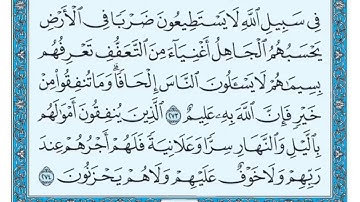 فِى سَبِيلِ ٱللَّهِ لَا يَسْتَطِيعُونَ ضَرْبًا فِى ٱلْأَرْضِ
يَحْسَبُهُمُ ٱلْجَاهِلُ أَغْنِيَآءَ مِنَ ٱلتَّعَفُّفِ تَعْرِفُهُم
بِسِيمَٰهُمْ لَا يَسْـَٔلُونَ ٱلنَّاسَ إِلْحَافًا ۗ وَمَا تُنفِقُوا۟ مِنْ
خَيْرٍ فَإِنَّ ٱللَّهَ بِهِۦ عَلِيمٌ ٢٧٣ ٱلَّذِينَ يُنفِقُونَ أَمْوَٰلَهُم
بِٱلَّيْلِ وَٱلنَّهَارِ سِرًّا وَعَلَانِيَةً فَلَهُمْ أَجْرُهُمْ عِندَ
رَبِّهِمْ وَلَا خَوْفٌ عَلَيْهِمْ وَلَا هُمْ يَحْزَنُونَ ٢٧٤